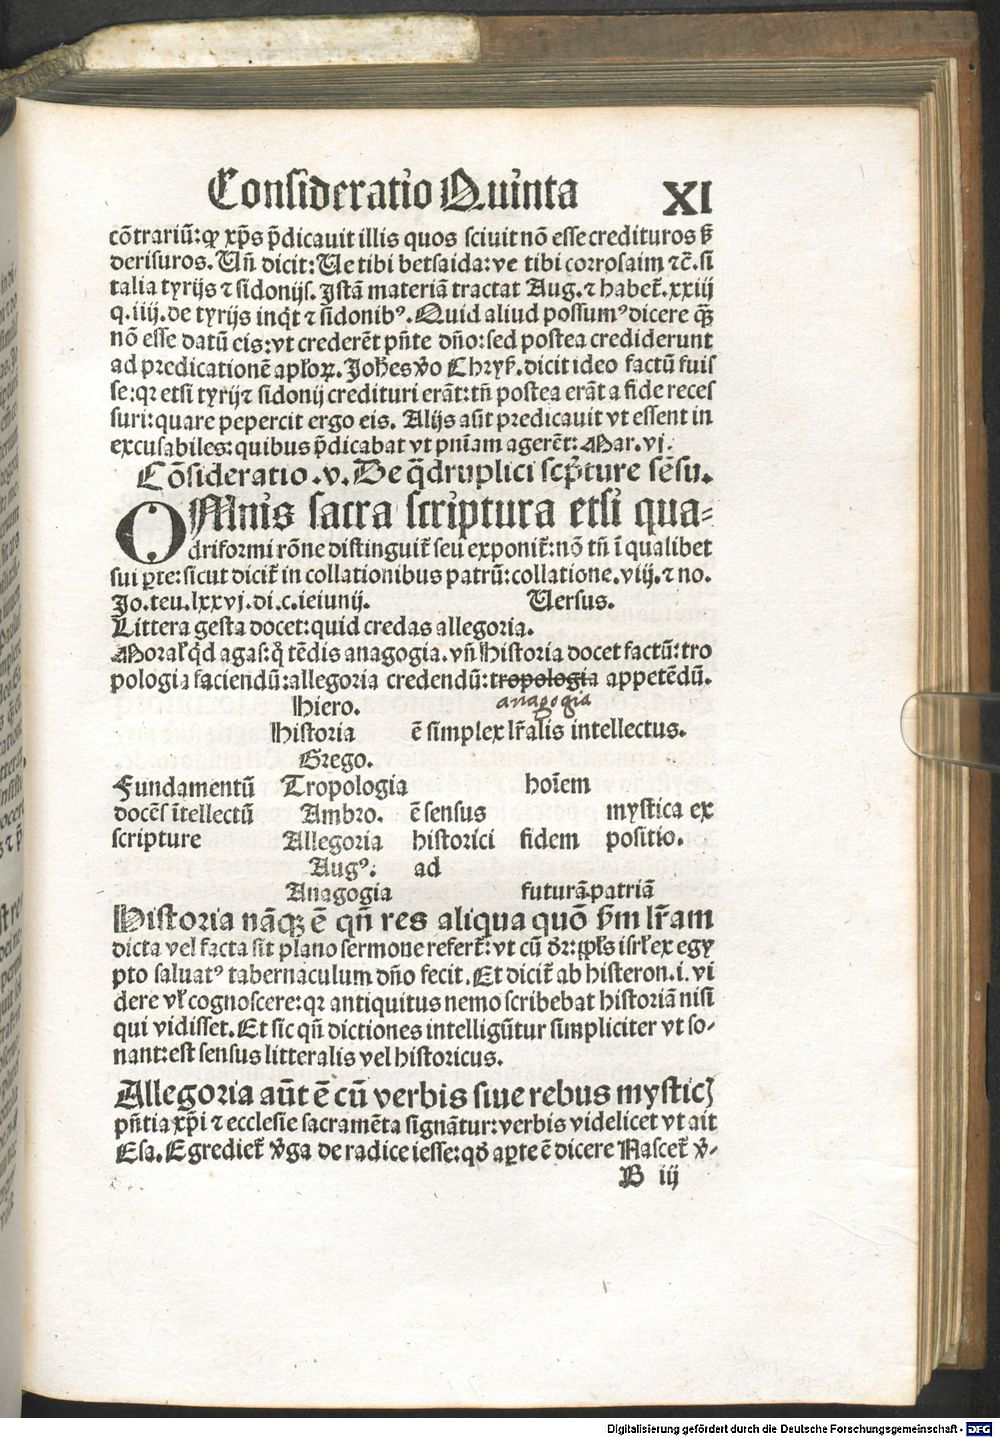 Consideratio Quinta XI
cōtrariū: qꝛ xp̄s p̄dicauit illis quos sciuit nō esse credituros sꝫ
derisuros. Vn̄ dicit: Ve tibi betsaida: ve tibi corrosaim ⁊c̄. si
talia tyrijs ⁊ sidonijs. Istā materiā tractat Aug. ⁊ habet̄. xxiij
q. iiij. de tyrijs inq̇t ⁊ sidonibꝰ. Quid aliud possumꝰ dicere qꝫ̄
nō esse datū eis: vt crederēt pn̄te dn̄o: sed postea crediderunt
ad predicationē apl̓oꝝ. Joh̄es v̓o Chryẜ. dicit ideo factū fuis
se: qꝛ etsi tyrij ⁊ sidonij credituri erāt: tn̄ postea erāt a fide reces
suri: quare pepercit ergo eis. Alijs aūt predicauit vt essent in
excusabiles: quibus p̄dicabat vt pnīam agerēt: Mar. vj.
Cōsideratio .v. De q̄druplici scp̄ture sēsu.
OMnis sacra scriptura etsi qua⸗
driformi rōne distinguit̄ seu exponit̄: nō tn̄ ī qualibet
sui ꝑte: sicut dicit̄ in collationibus patrū: collatione. viij. ⁊ no.
Jo. teu. lxxvj. di. c. ieiunij. Versus.
Littera gesta docet: quid credas allegoria.
Moral̓ q̇d agas: q̊ tēdis anagogia. vn̄ Historia docet factū: tro
pologia faciendū: allegoria credendū: tropologia appetēdū.
Hiero. anagogia
Historia ē simplex lr̄alis intellectus.
Grego.
Fundamentū Tropologia hoīem
docēs ītellectū Ambro. ē sensus mystica ex
scripture Allegoria historici fidem positio.
Augꝰ: ad
Anagogia futurā patriā
Historia nāqꝫ ē qn̄ res aliqua quō ẜm lr̄am
dicta vel facta sit plano sermone refert̄: vt cū dr̄: ppl̓s isrl̓ ex egy
pto saluatꝰ tabernaculum dn̄o fecit. Et dicit̄ ab histeron. i. vi
dere vl̓ cognoscere: qꝛ antiquitus nemo scribebat historiā nisi
qui vidisset. Et sic qn̄ dictiones intelligūtur simpliciter vt so⸗
nant: est sensus litteralis vel historicus.
Allegoria aūt ē cū verbis siue rebus mysticꝭ
pn̄tia xp̄i ⁊ ecclesie sacramēta signātur: verbis videlicet vt ait
Esa. Egrediet̄ v̓ga de radice iesse: qd̓ aꝑte ē dicere Nascet̄ v̓⸗
B iij
Digitalisierung gefördert durch die Deutsche Forschungsgemeinschaft - DFG